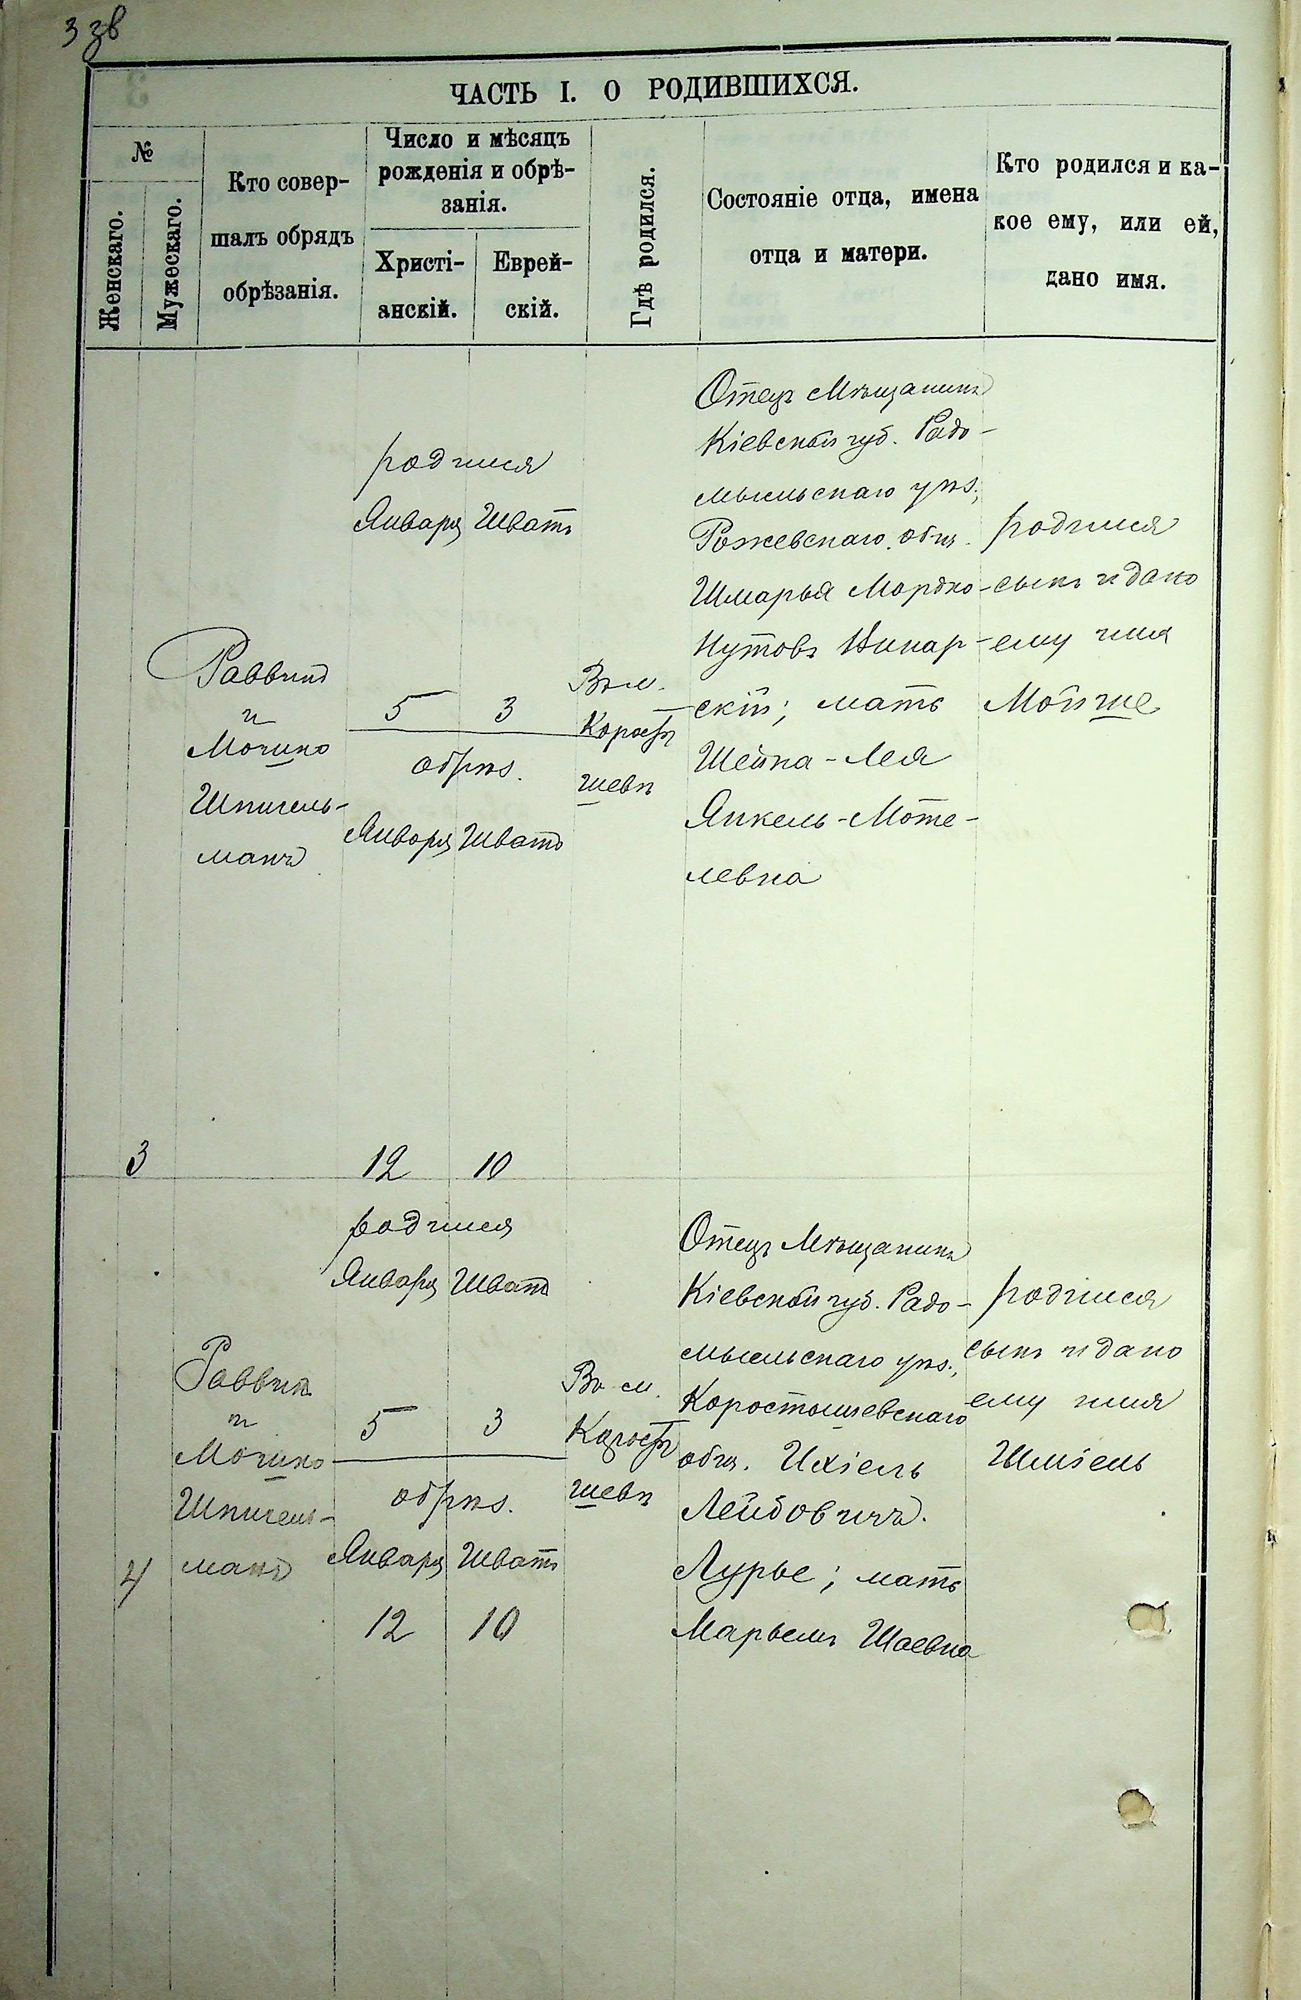 3 зв
ЧАСТЬ I. О РОДИВШИХСЯ.
№
Женскаго.
Мужескаго.
Кто совер-
шалъ обрядъ
обрѣзанія.
Число и мѣсяцъ
рожденія и обрѣ-
занія.
Христі-
анскій.
Еврей-
скій.
Гдѣ родился.
Состояніе отца, имена
отца и матери.
Кто родился и ка-
кое ему, или ей,
дано имя.
3
Раввинъ
и
Шпигель-
манъ
родился
Января Шватъ
5 3
обрѣз.
Января Шватъ
12 10
Въ м.
Корост
шевѣ
Отецъ Мѣщанинъ
Кіевской губ. Радо-
мысльскаго уѣз.,
Рожевскаго общ.
Шмарья Мордко-
скій; мать
Шейна-Лея
Янкель-Моте-
левна
родился
сынъ и дано
ему имя
Мойше
4
Раввинъ
и
Шпигель-
манъ
родился
Января Шватъ
5 3
обрѣз.
Января Шватъ
12 10
Въ м.
Корост
шевѣ
Отецъ Мѣщанинъ
Кіевской губ. Радо-
мысльскаго уѣз.,
Коростышевскаго
общ. Ихіель
Лейбовичъ
Лурье; мать
Марьемъ Шаевна
родился
сынъ и дано
ему имя
Шміель